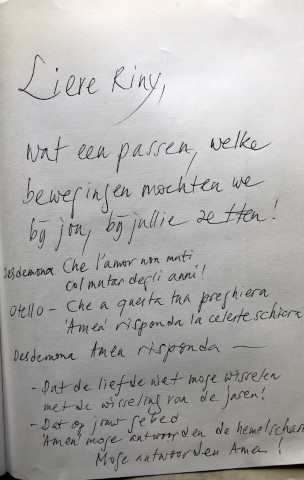 Lieve Riny,
wat een passen, welke
bewegingen mochten we
bij jou, bij jullie zetten!
Desdemona Che l'amor non muti
col mutar degli anni!
Otello - Che a questa tua preghiera
'Amen' risponda la celeste schiera
Desdemona Amen risponda —
- Dat de liefde niet moge wisselen
met de wisseling van de jaren!
- Dat op jouw gebed
'Amen' moge antwoorden de hemelschare
Moge antwoorden Amen!